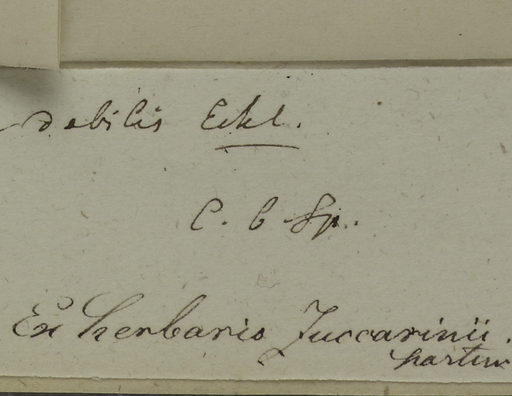 debilis Eckl.
C. b Sp.
Ex herbario Zuccarinii.
partim